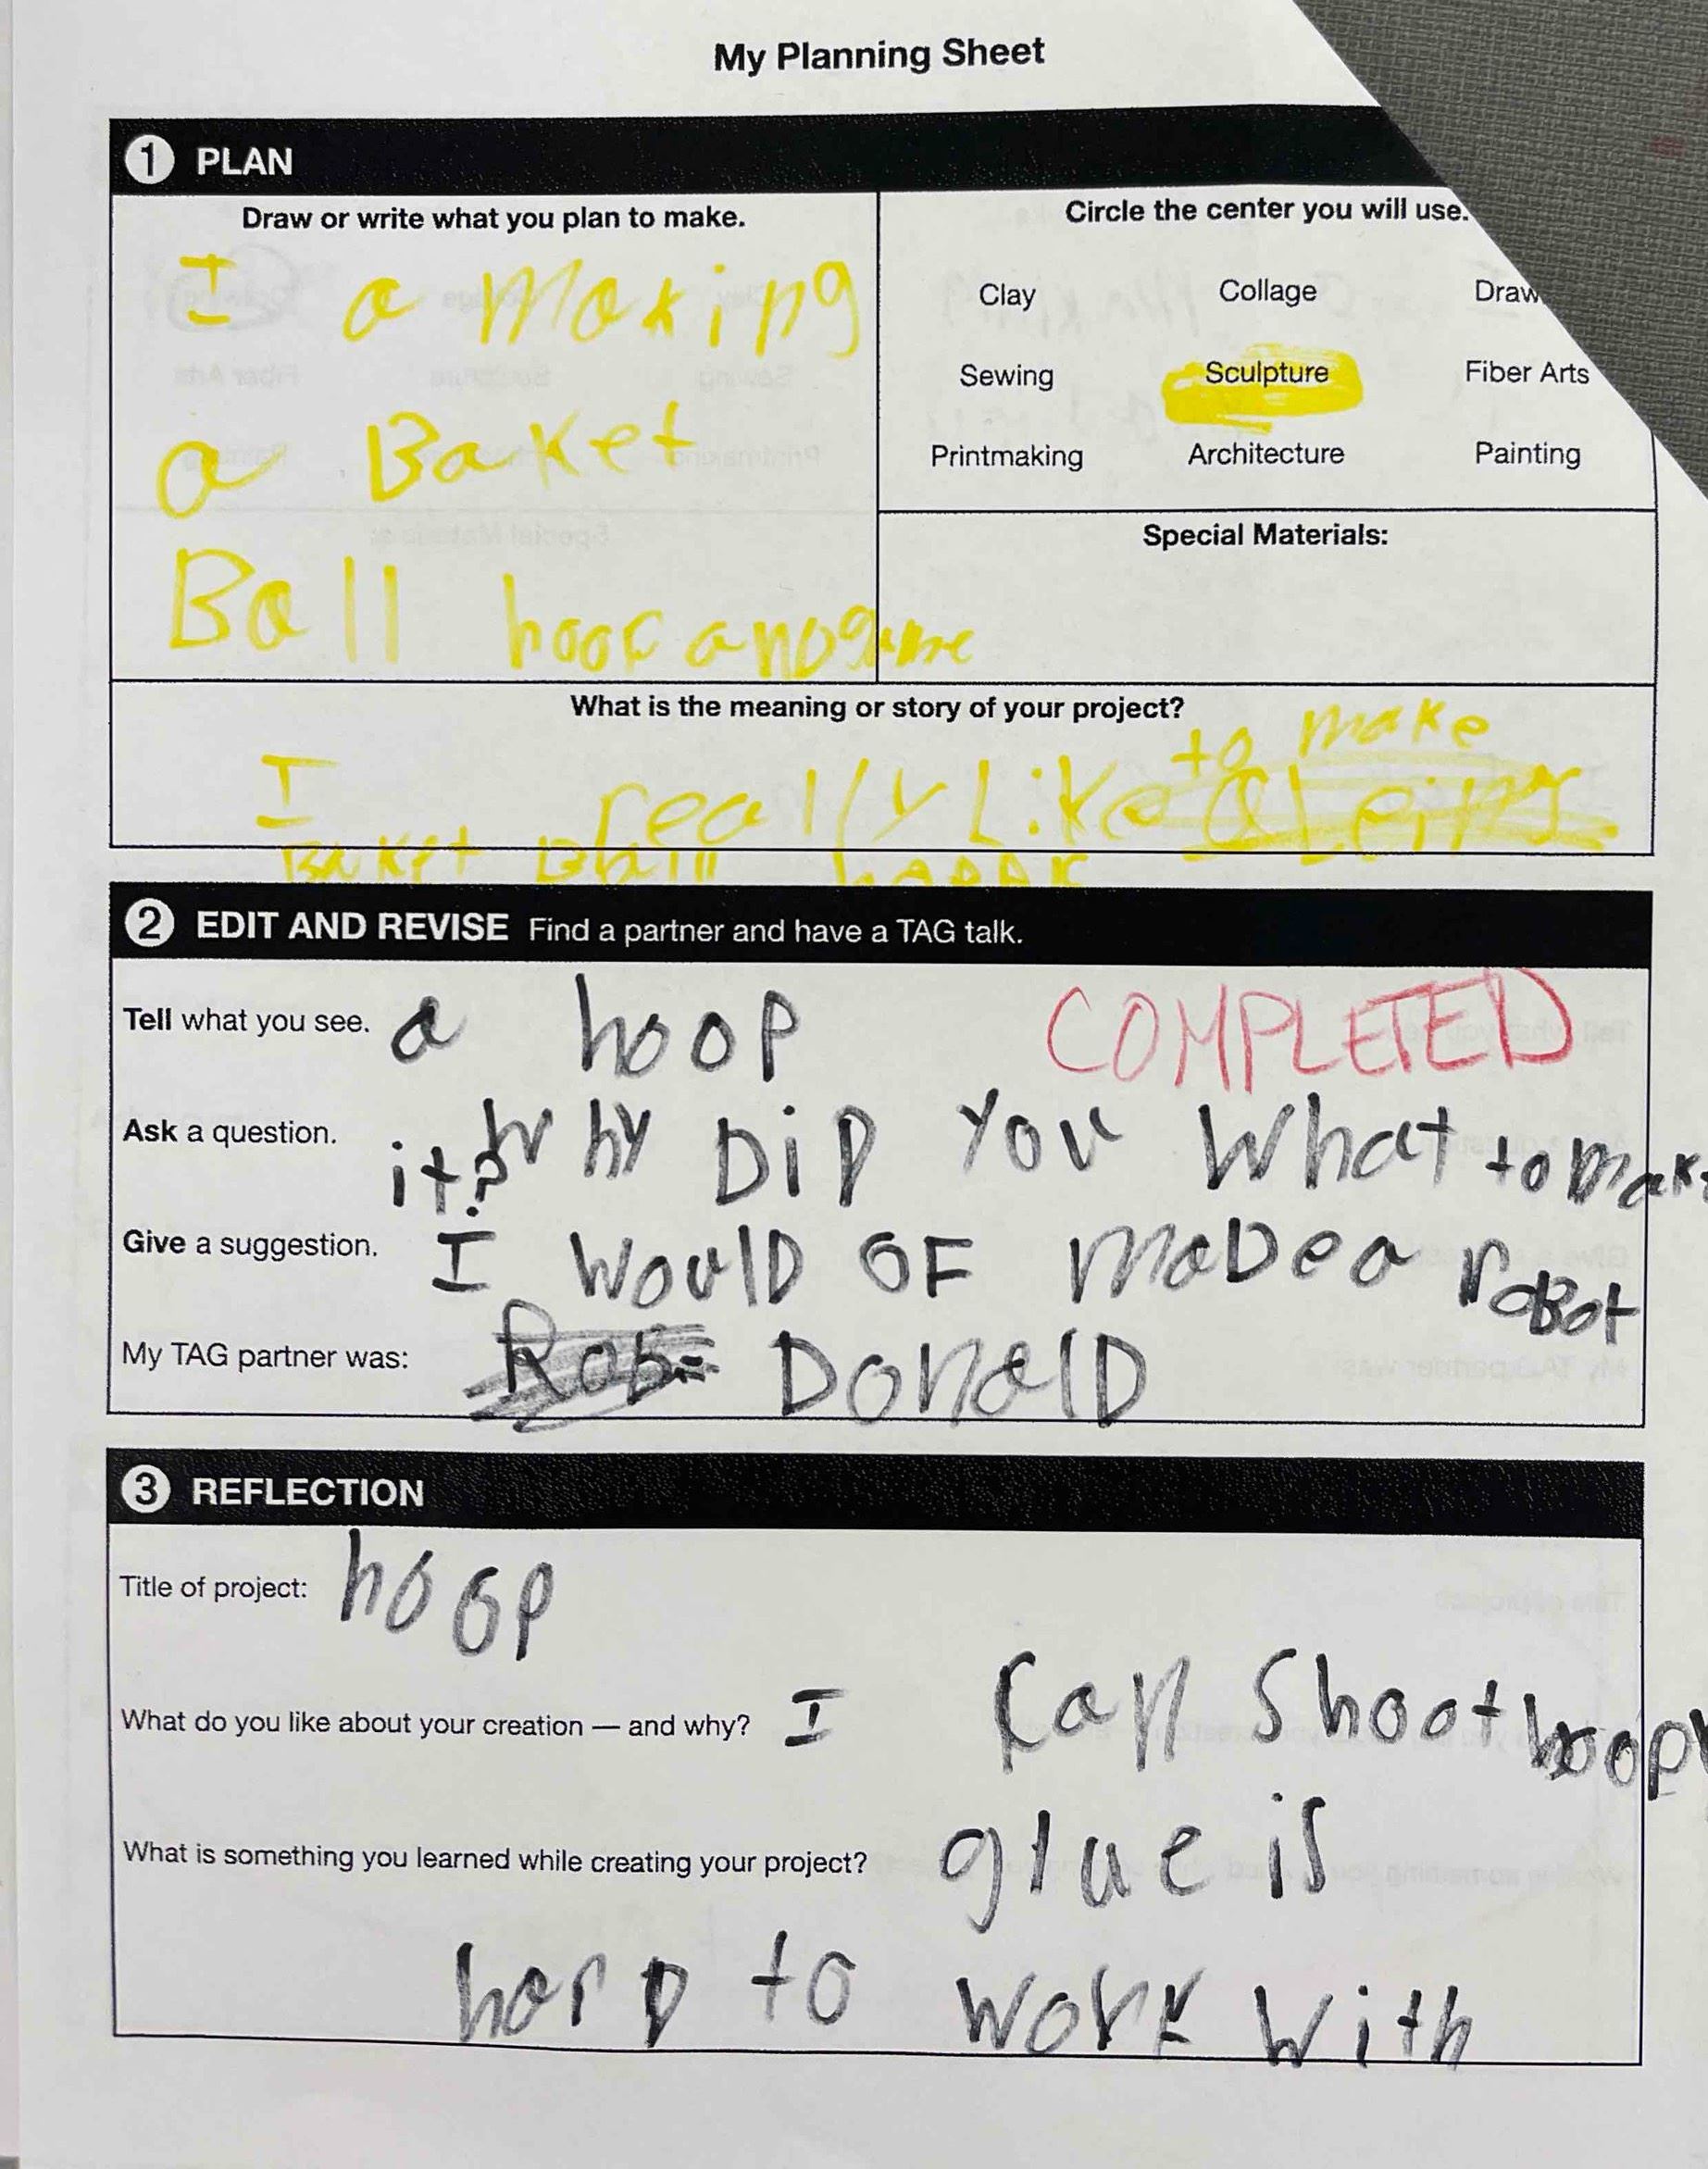 My Planning Sheet
1 PLAN
Draw or write what you plan to make.
I a making
a Baket
Ball hoop anogame
Circle the center you will use.
Clay Collage Draw
Sewing Sculpture Fiber Arts
Printmaking Architecture Painting
Special Materials:
What is the meaning or story of your project?
to make
I really Like
Baket Ball
2 EDIT AND REVISE Find a partner and have a TAG talk.
Tell what you see. a hoop COMPLETED
Ask a question. Why DiD You What to make
it?
Give a suggestion. I WoulD OF maDe a roBot
My TAG partner was: DonalD
3 REFLECTION
Title of project: hoop
What do you like about your creation — and why? I can Shoot hoop
What is something you learned while creating your project? glue is
harD to work With